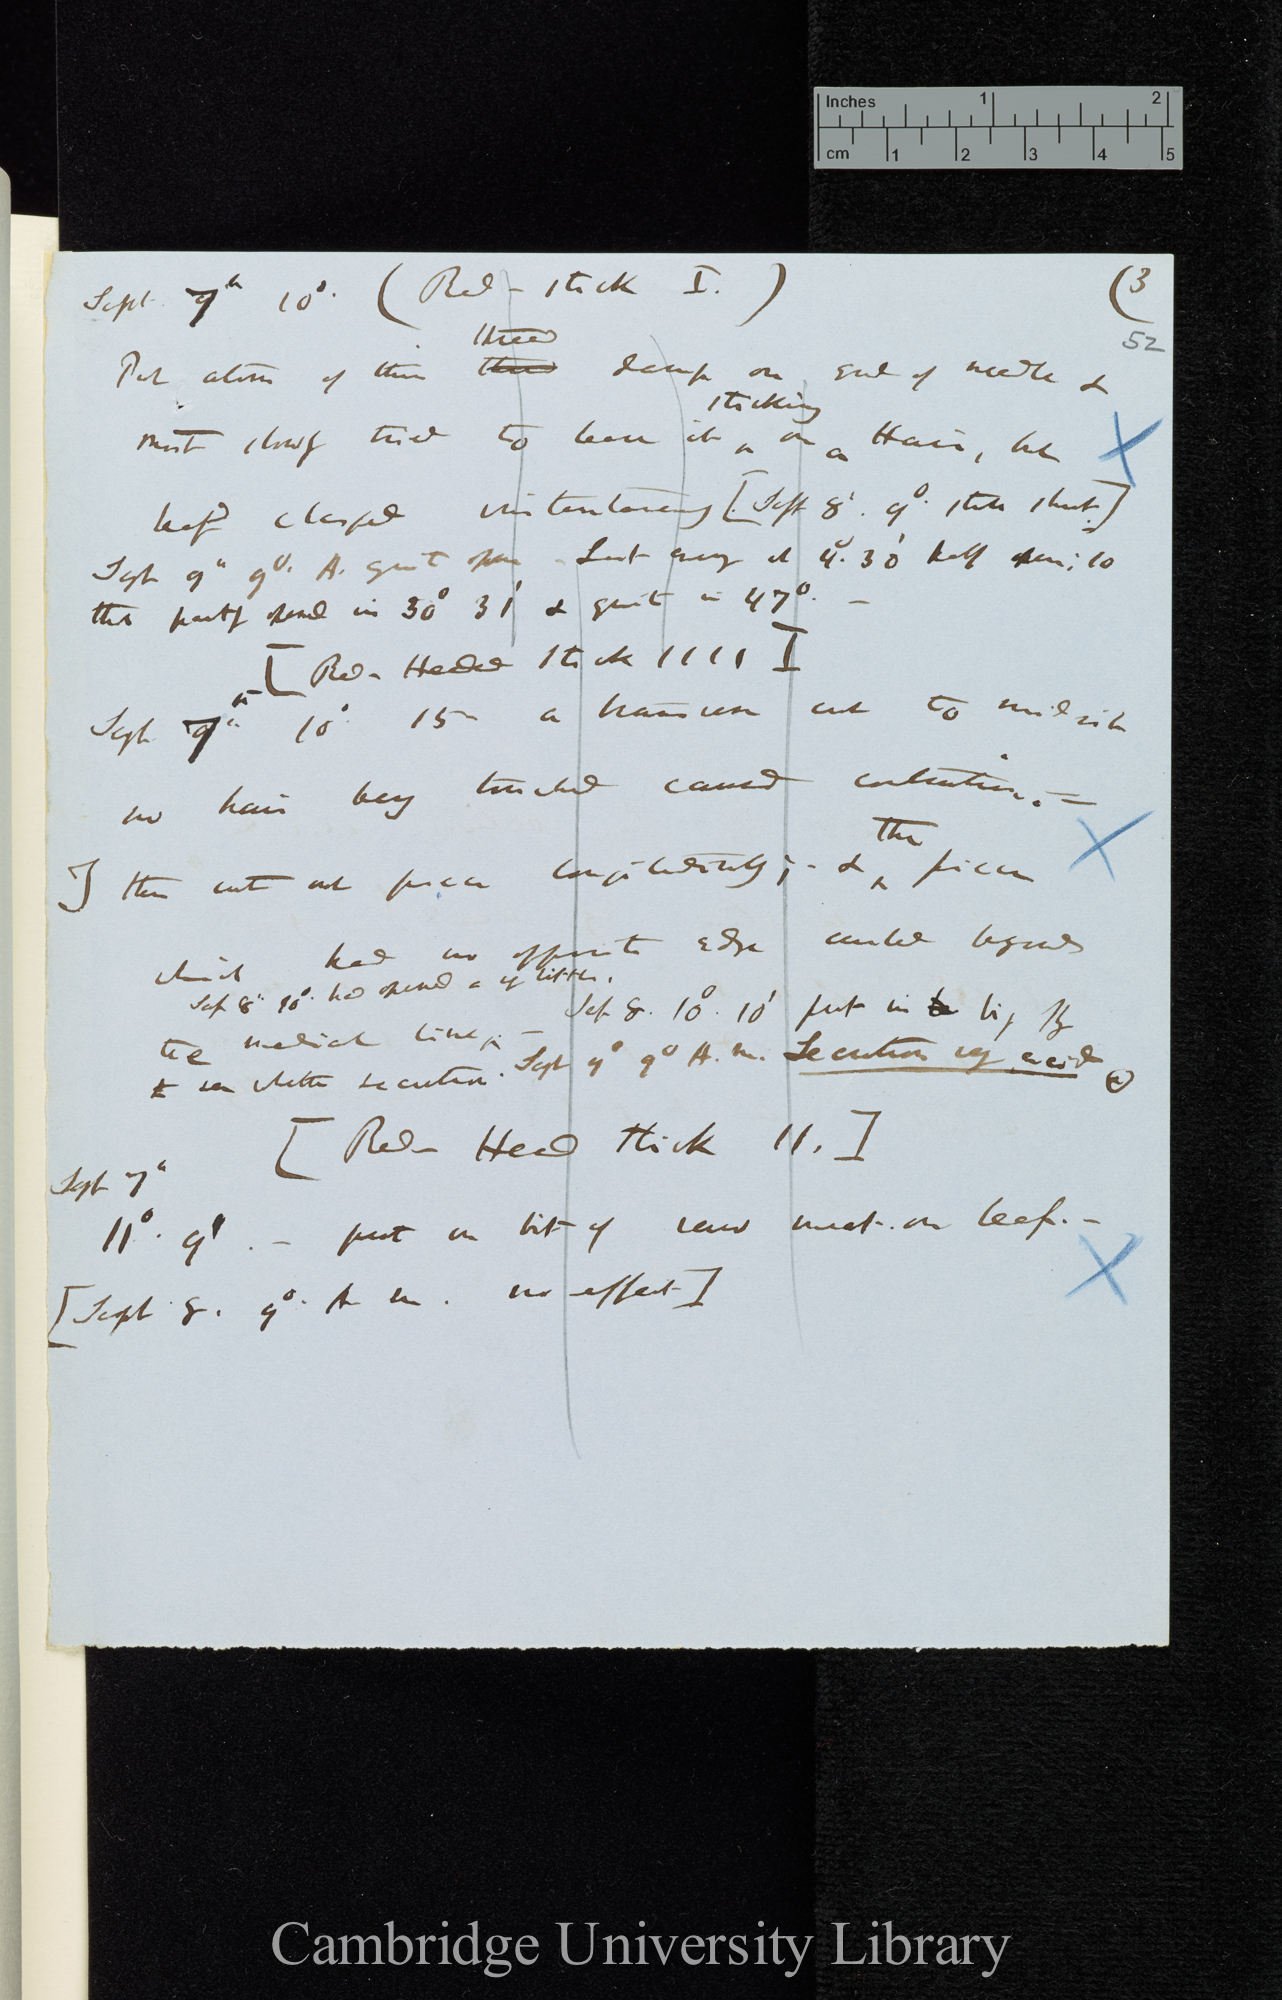 Inches 1 2
cm 1 2 3 4 5
Sept 7th 10°. (Red-stick I.) (3
52
Put atom of thin thread damp on end of needle &
most slowly tried to leave it sticking on a Hair, but
leaf closed instantaneously [Sept 8. 9° still shut.]
Sept 9th 9°. A. quite open - Last evening at 4°. 30' half open; so
that partly opened in 30° 31' & quite in 47°. —
[Red-Headed Stick 1111]
Sept 7th 10° 15 a transverse cut to midrib
no hair being touched caused contraction. —
I then cut out piece longitudinally; - & the piece
which had no opposite edge curled beyond
Sept 8th 10°. had opened a very little.
the medial line; — Sept 8. 10°. 10' put in big fly
to see whether secretion. Sept 9° 9° A.m. Secretion very acid
[Red-Head Stick 11.]
Sept 7th
11°. 9' . — put on bit of raw meat on leaf. —
[Sept 8. 9°. A m. no effect]
Cambridge University Library